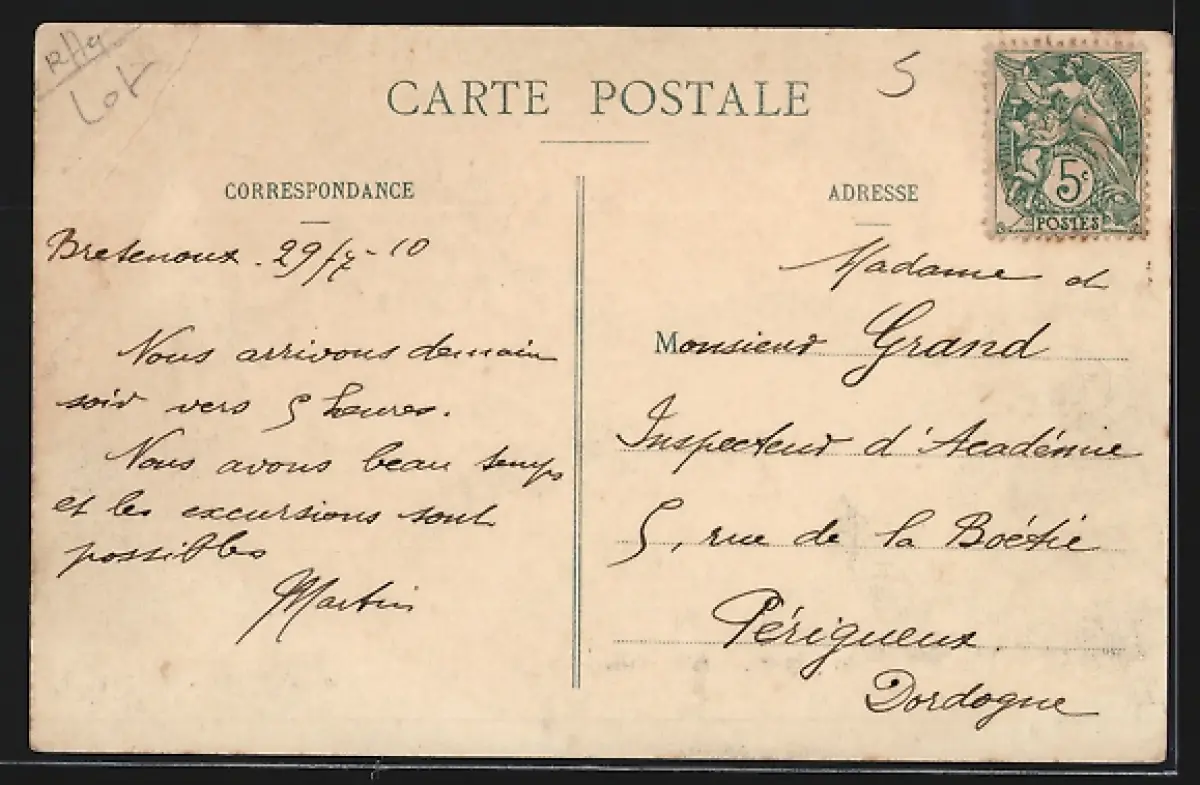 Lot
CARTE POSTALE
5
5c
POSTES
CORRESPONDANCE
Bretenoux. 29/7-10
Nous arrivons demain
soir vers 5 heures.
Nous avons beau temps
et les excursions sont
possibles
Martin
ADRESSE
Madame et
Monsieur Grand
Inspecteur d'Académie
5, rue de la Boétie
Périgueux.
Dordogne